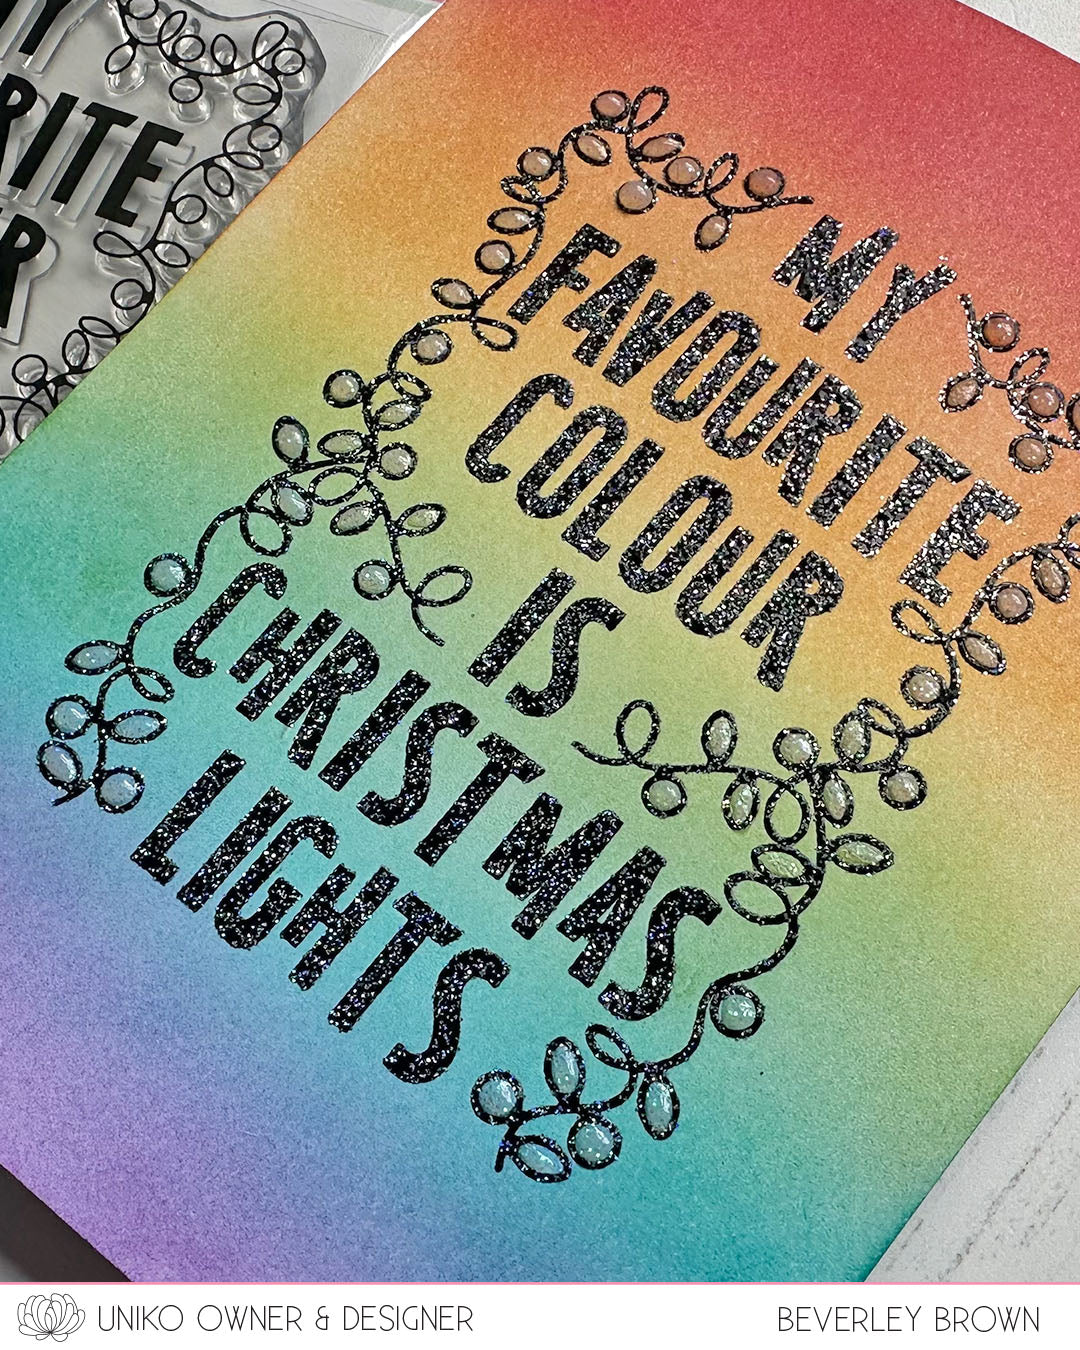 MY
FAVOURITE
COLOUR
IS
CHRISTMAS
LIGHTS
UNIKO OWNER & DESIGNER
BEVERLEY BROWN